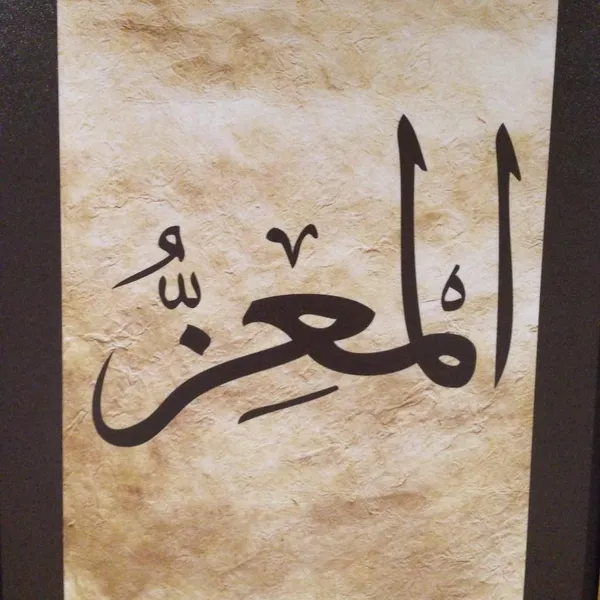 الْمُعِزُّ